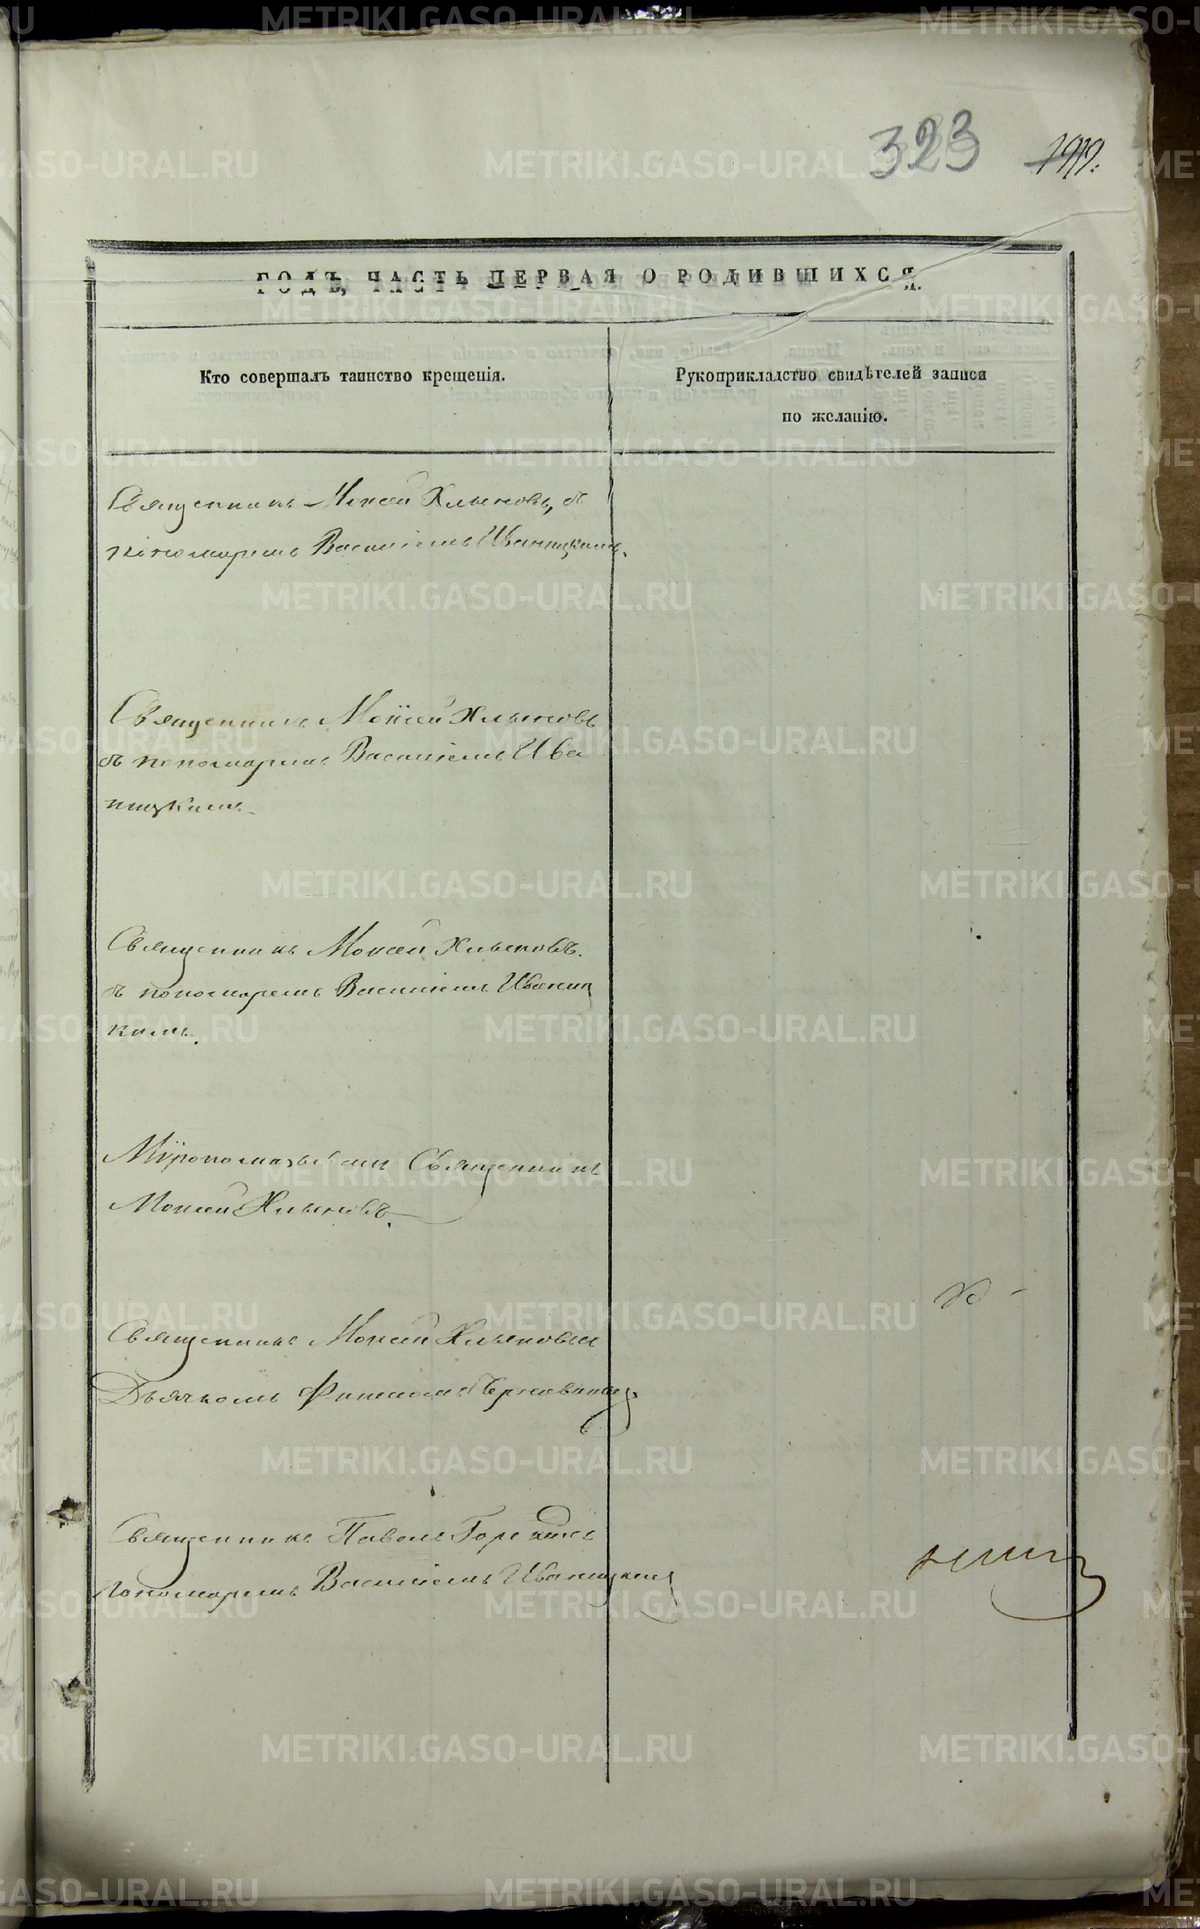 323
ГОДЪ, ЧАСТЬ ПЕРВАЯ О РОДИВШИХСЯ.
Кто совершалъ таинство крещенія.
Рукоприкладство свидѣтелей записи
по желанію.
Священникъ Моисей Хлыновъ, съ
пономаремъ Василіемъ Иваницкимъ.
Священникъ Моисей Хлыновъ
съ пономаремъ Василіемъ Ива
ницкимъ
Священникъ Моисей Хлыновъ.
съ пономаремъ Василіемъ Иваниц
кимъ.
Священникъ
Моисей Хлыновъ.
Священникъ Моисей Хлыновъ
Дьячкомъ
Священникъ Павелъ
пономаремъ Василіемъ Иваницкимъ
METRIKI.GASO-URAL.RU